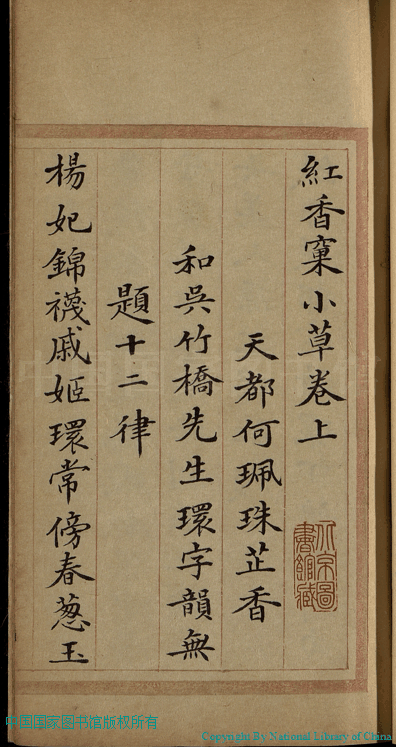 紅香窠小草卷上
天都何珮珠芷香
和吳竹橋先生環字韻無
題十二律
楊妃錦襪戚姬環常傍春葱玉
北京圖書館藏
中国国家图书馆版权所有
Copyright By National Library of China